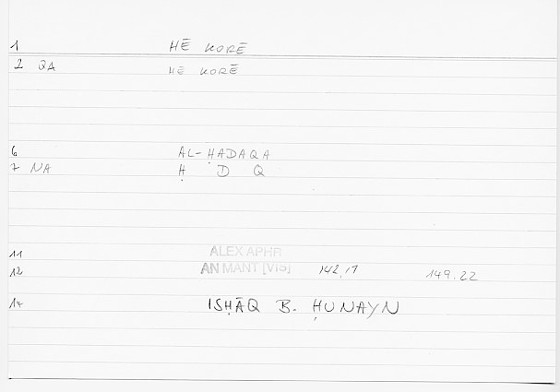 1 HĒ KORĒ
2 QA HĒ KORĒ
6 AL-ḤADAQA
7 NA Ḥ D Q
11 ALEX APHR
12 AN MANT [VIS] 142,17 149.22
17 ISḤĀQ B. ḤUNAYN